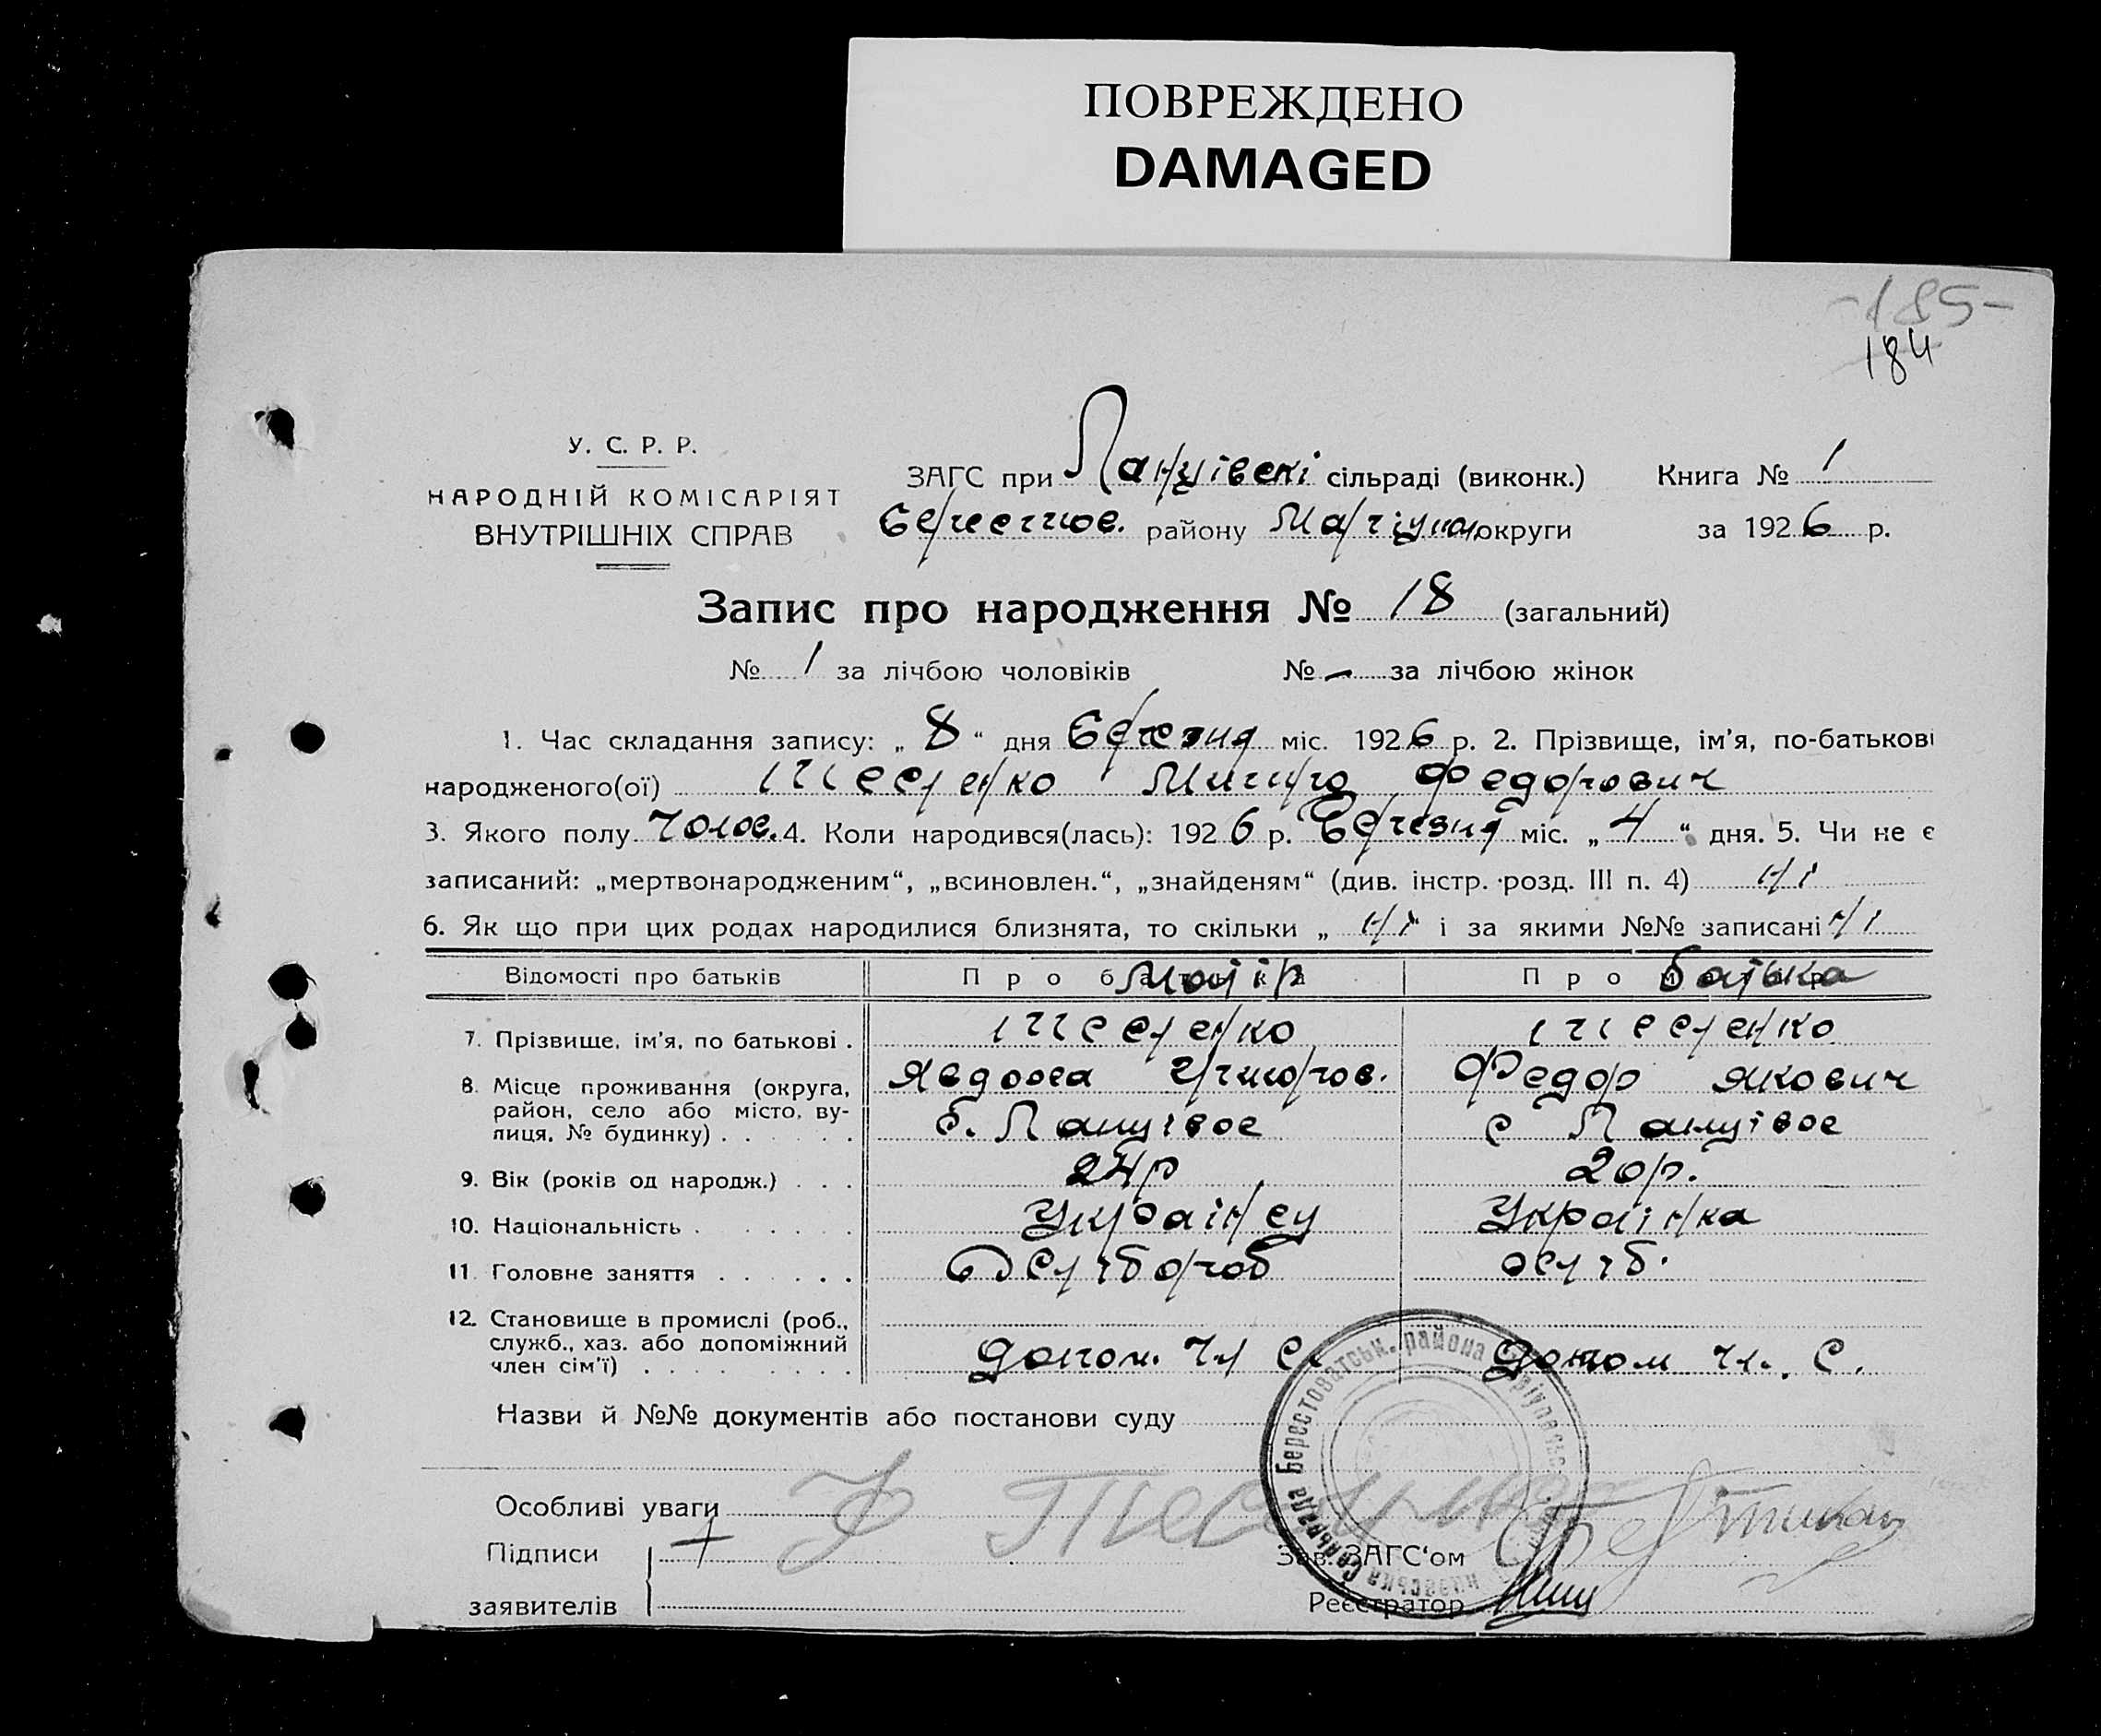 ПОВРЕЖДЕНО
DAMAGED
-185-
184
У. С. Р. Р.
НАРОДНІЙ КОМІСАРІЯТ
ВНУТРІШНІХ СПРАВ
ЗАГС при Ланцівскі сільраді (виконк.) Книга № 1
району округи за 1926 р.
Запис про народження № 18 (загальний)
№ 1 за лічбою чоловіків № – за лічбою жінок
1. Час складання запису: „ 8 “ дня Березня міс. 1926 р. 2. Прізвище, ім’я, по-батькові
народженого(ої) Федорович
3. Якого полу Чолов. 4. Коли народився(лась): 1926 р. Березня міс. „ 4 “ дня. 5. Чи не є
записаний: „мертвонародженим“, „всиновлен.“, „знайденям“ (див. інстр. розд. III п. 4) Ні
6. Як що при цих родах народилися близнята, то скільки „ Ні “ і за якими №№ записані Ні
Відомості про батьків Про батька Матір Про матір Батька
7. Прізвище, ім’я, по батькові .
8. Місце проживання (округа, Явдоха Григоров. Федор Якович
район, село або місто, ву-
лиця, № будинку) . . . . . .
9. Вік (років од народж.) . . . 24р 20р.
10. Національність . . . . . . Українец Українка
11. Головне заняття . . . . . .
12. Становище в промислі (роб.,
служб., хаз. або допоміжний
член сім’ї) . . . . . . . . допом. чл С. допом чл. С.
Назви й №№ документів або постанови суду
Особливі уваги
Підписи + Зав. ЗАГС‘ом
заявителів Реєстратор
Сельрада Берестоватськ. района